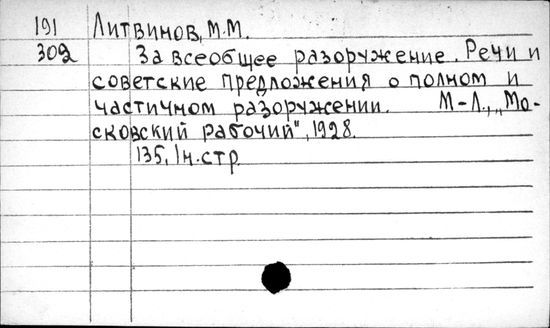 191 Литвинов, М.М.
302 За всеобщее разоружение. Речи и
советские предложения о полном и
частичном разоружении. М-Л., „Мо-
сковский рабочий", 1928.
135, 1н.стр.